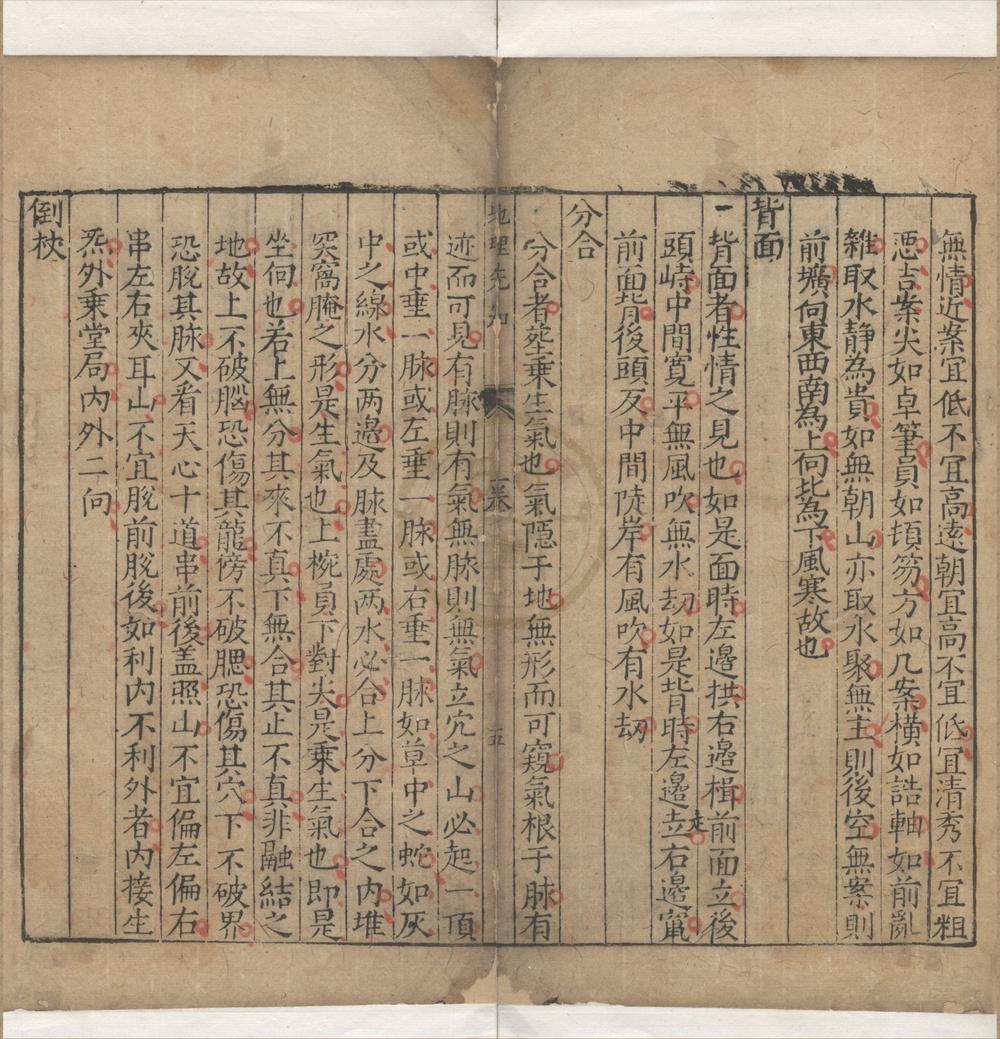 無情近案宜低不宜高遠朝宜高不宜低宜清秀不宜粗
惡吉案尖如卓筆員如頓笏方如几案橫如誥軸如前亂
雜取水静為貴如無朝山亦取水聚無主則後空無案則
前壙向東西南為上向北為下風寒故也
背面
一背面者性情之見也如是面時左邊拱右邊楫前面立後
頭峙中間寬平無風吹無水刼如是背時左邊走右邊竄
前面背後頭反中間陡岸有風吹有水刼
分合
分合者塟乗生氣也氣隠于地無形而可窺氣根于脉有
地理先知 一卷 五
迹而可見有脉則有氣無脉則無氣立穴之山必起一頂
或中垂一脉或左垂一脉或右垂一脉如草中之蛇如灰
中之線水分两邊及脉盡處两水必合上分下合之内堆
突窩腌之形是生氣也上椀員下對尖是乗生氣也即是
坐向也若上無分其來不真下無合其止不真非融結之
地故上不破腦恐傷其龍傍不破腮恐傷其穴下不破界
恐脫其脉又看天心十道串前後盖照山不宜偏左偏右
串左右夾耳山不宜脫前脫後如利内不利外者内接生
炁外乗堂局内外二向
倒杖